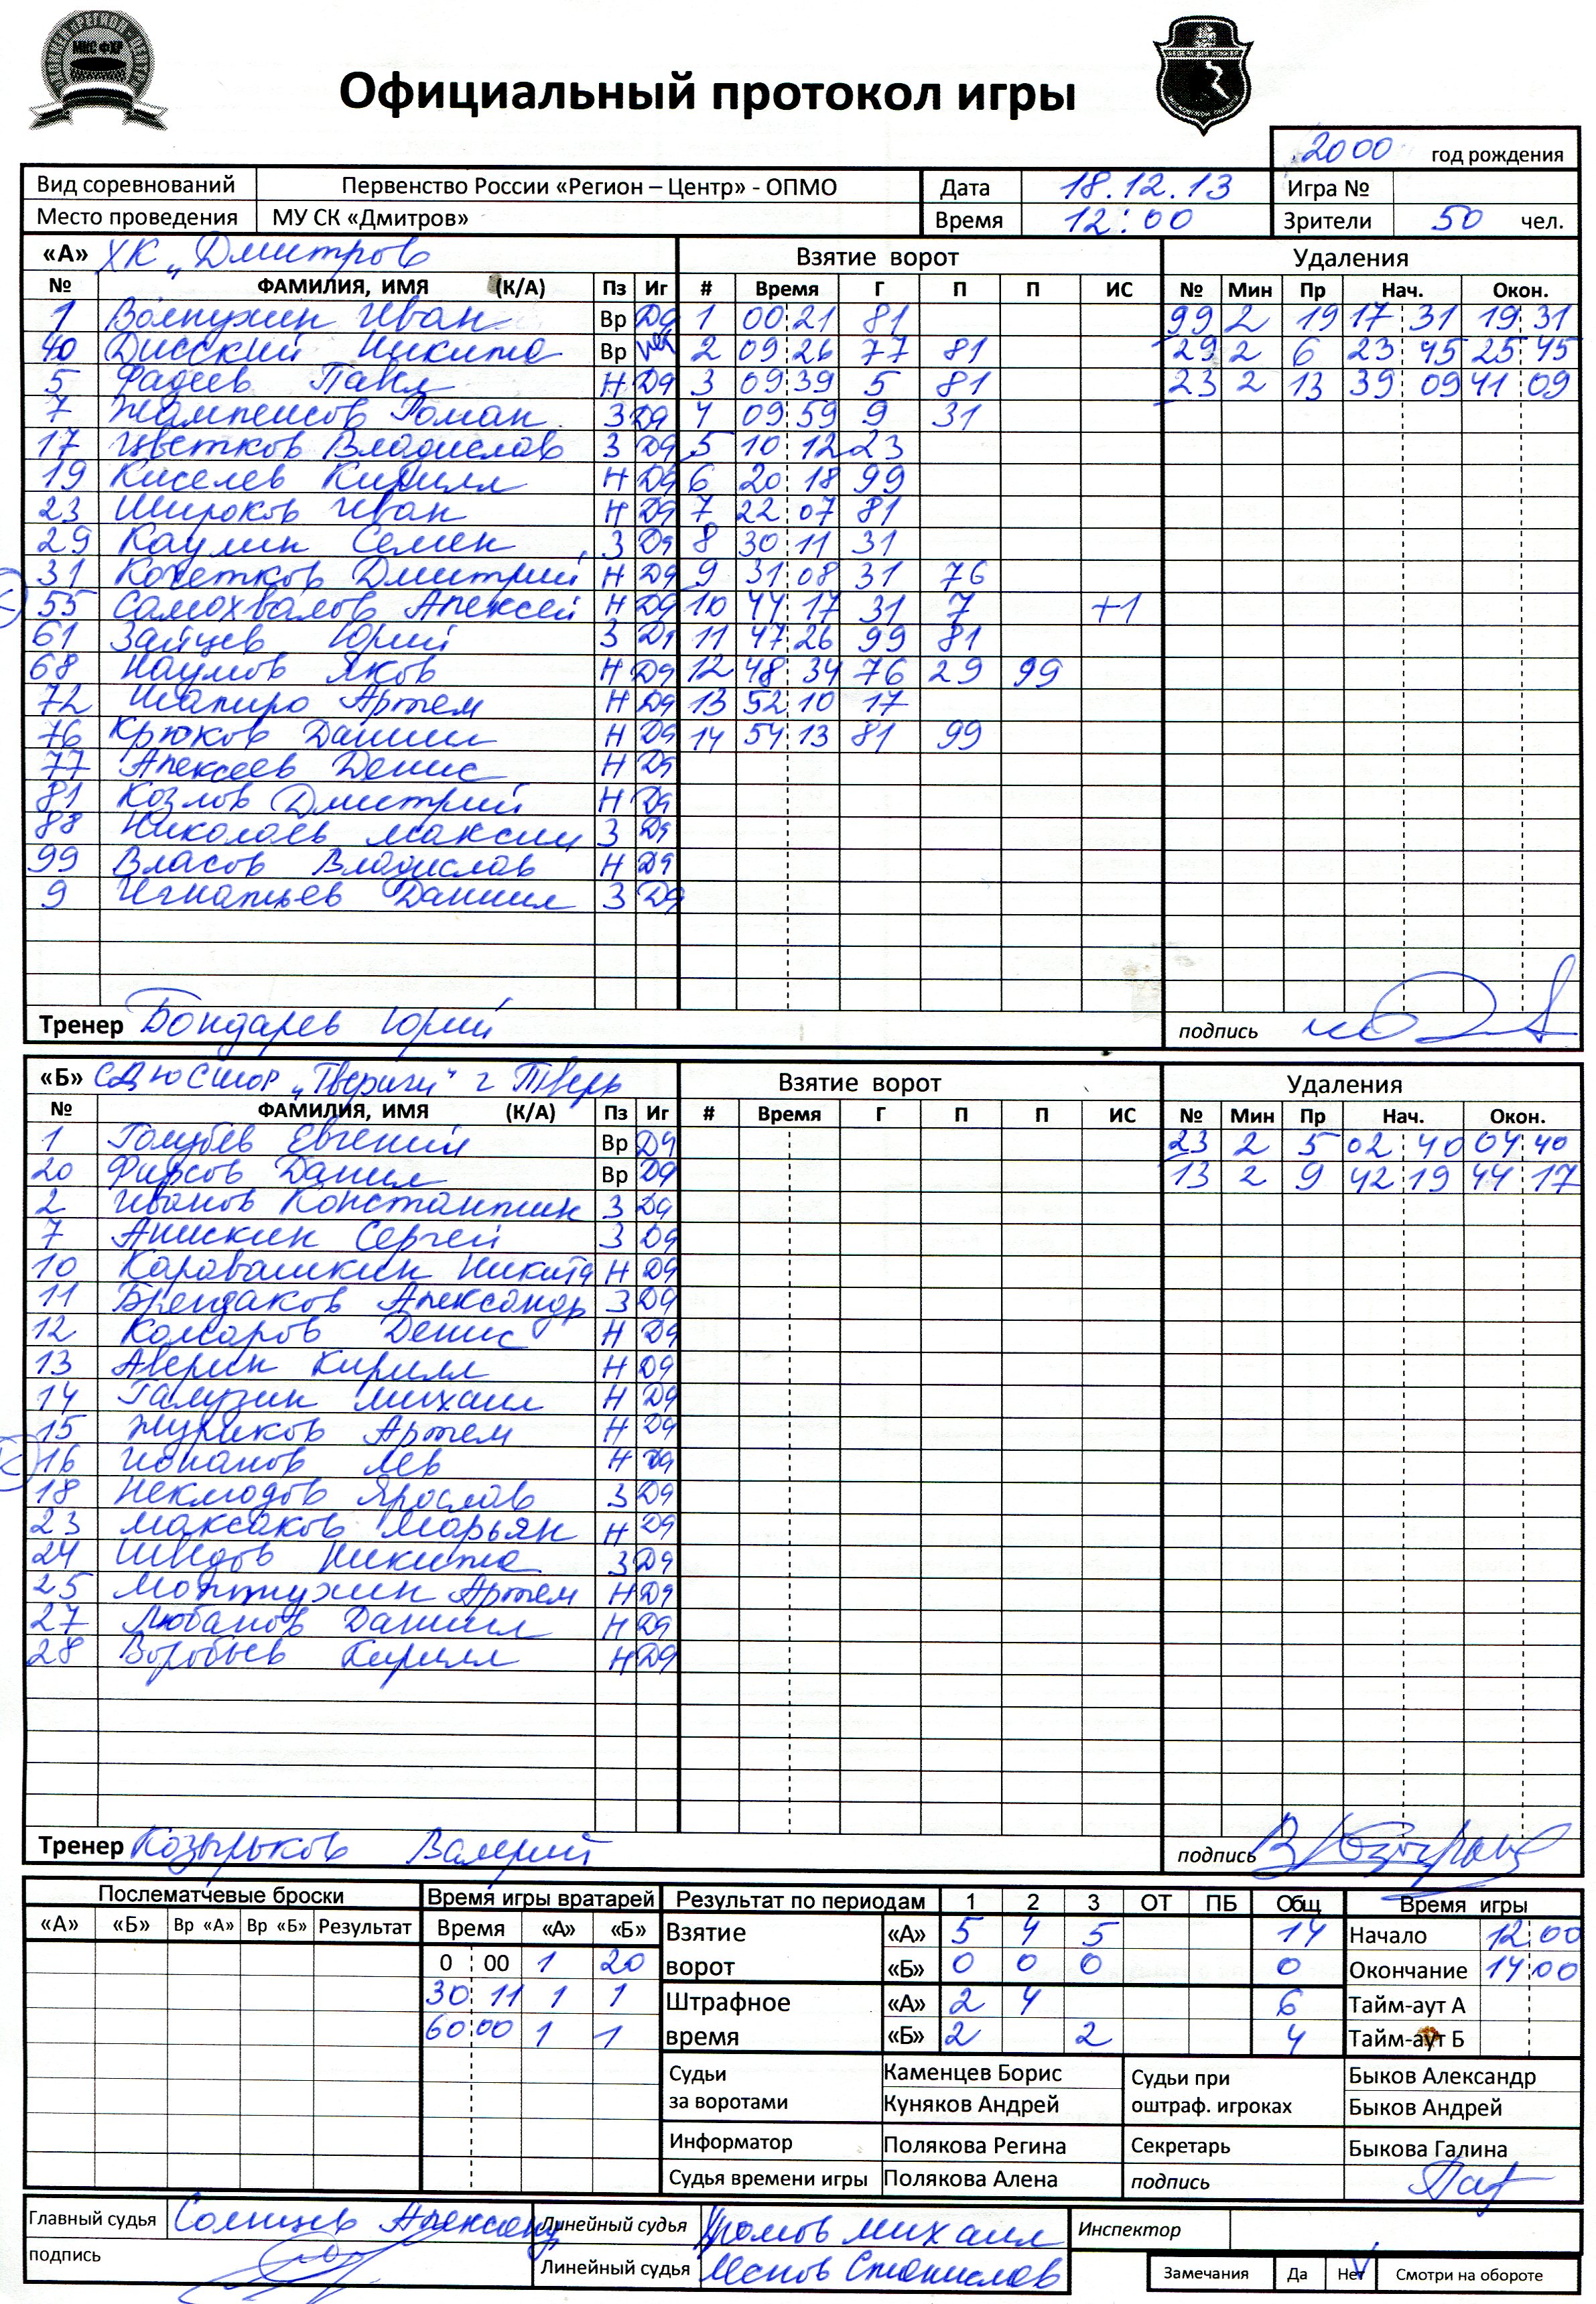 Официальный протокол игры
2000 год рождения
Вид соревнований Первенство России «Регион – Центр» - ОПМО Дата 18.12.13 Игра №
Место проведения МУ СК «Дмитров» Время 12:00 Зрители 50 чел.
«А» ХК „Дмитров Взятие ворот Удаления
№ ФАМИЛИЯ, ИМЯ (К/А) Пз Иг # Время Г П П ИС № Мин Пр Нач. Окон.
1 Волпухин Иван Вр Да 1 00 21 81 99 2 19 17 31 19 31
40 Никита Вр нет 2 09 26 77 81 29 2 6 23 45 25 45
5 Фадеев Павел Н Да 3 09 39 5 81 23 2 13 39 09 41 09
7 Жампеисов Роман З Да 4 09 59 9 31
17 Цветков Владислав З Да 5 10 12 23
19 Киселев Кирилл Н Да 6 20 18 99
23 Широков Иван Н Да 7 22 07 81
29 Каулин Семен З Да 8 30 11 31
31 Кочетков Дмитрий Н Да 9 31 08 31 76
К 55 Самохвалов Алексей Н Да 10 44 17 31 7 +1
61 Зайцев Юрий З Да 11 47 26 99 81
68 Наумов Яков Н Да 12 48 34 76 29 99
72 Шапиро Артем Н Да 13 52 10 17
76 Крюков Даниил Н Да 14 54 13 81 99
77 Алексеев Денис Н Да
81 Козлов Дмитрий Н Да
88 Николаев Максим З Да
99 Власов Владислав Н Да
9 Игнатьев Даниил З Да
Тренер Бондарев Юрий подпись
«Б» СДЮСШОР „Тверичи" г Тверь Взятие ворот Удаления
№ ФАМИЛИЯ, ИМЯ (К/А) Пз Иг # Время Г П П ИС № Мин Пр Нач. Окон.
1 Голубев Евгений Вр Да 23 2 5 02 40 04 40
20 Фирсов Данил Вр Да 13 2 9 42 19 44 17
2 Иванов Константин З Да
7 Анискин Сергей З Да
10 Каравашкин Никита Н Да
11 Брендаков Александр З Да
12 Комаров Денис Н Да
13 Аверин Кирилл Н Да
14 Галузин Михаил Н Да
15 Журиков Артем Н Да
К 16 Лев Н Да
18 Неклюдов Ярослав З Да
23 Максаков Марьян Н Да
24 Шведов Никита З Да
25 Артем Н Да
27 Любанов Даниил Н Да
28 Воробьев Кирилл Н Да
Тренер Козырьков Валерий подпись
Послематчевые броски Время игры вратарей Результат по периодам 1 2 3 ОТ ПБ Общ Время игры
«А» «Б» Вр «А» Вр «Б» Результат Время «А» «Б» Взятие «А» 5 4 5 14 Начало 12 00
0 00 1 20 ворот «Б» 0 0 0 0 Окончание 14 00
30 11 1 1 Штрафное «А» 2 4 6 Тайм-аут А
60 00 1 1 время «Б» 2 2 4 Тайм-аут Б
Судьи Каменцев Борис Судьи при Быков Александр
за воротами Куняков Андрей оштраф. игроках Быков Андрей
Информатор Полякова Регина Секретарь Быкова Галина
Судья времени игры Полякова Алена подпись
Главный судья Солнцев Александр Линейный судья Громов Михаил Инспектор
подпись Линейный судья Станислав Замечания Да Нет Смотри на обороте